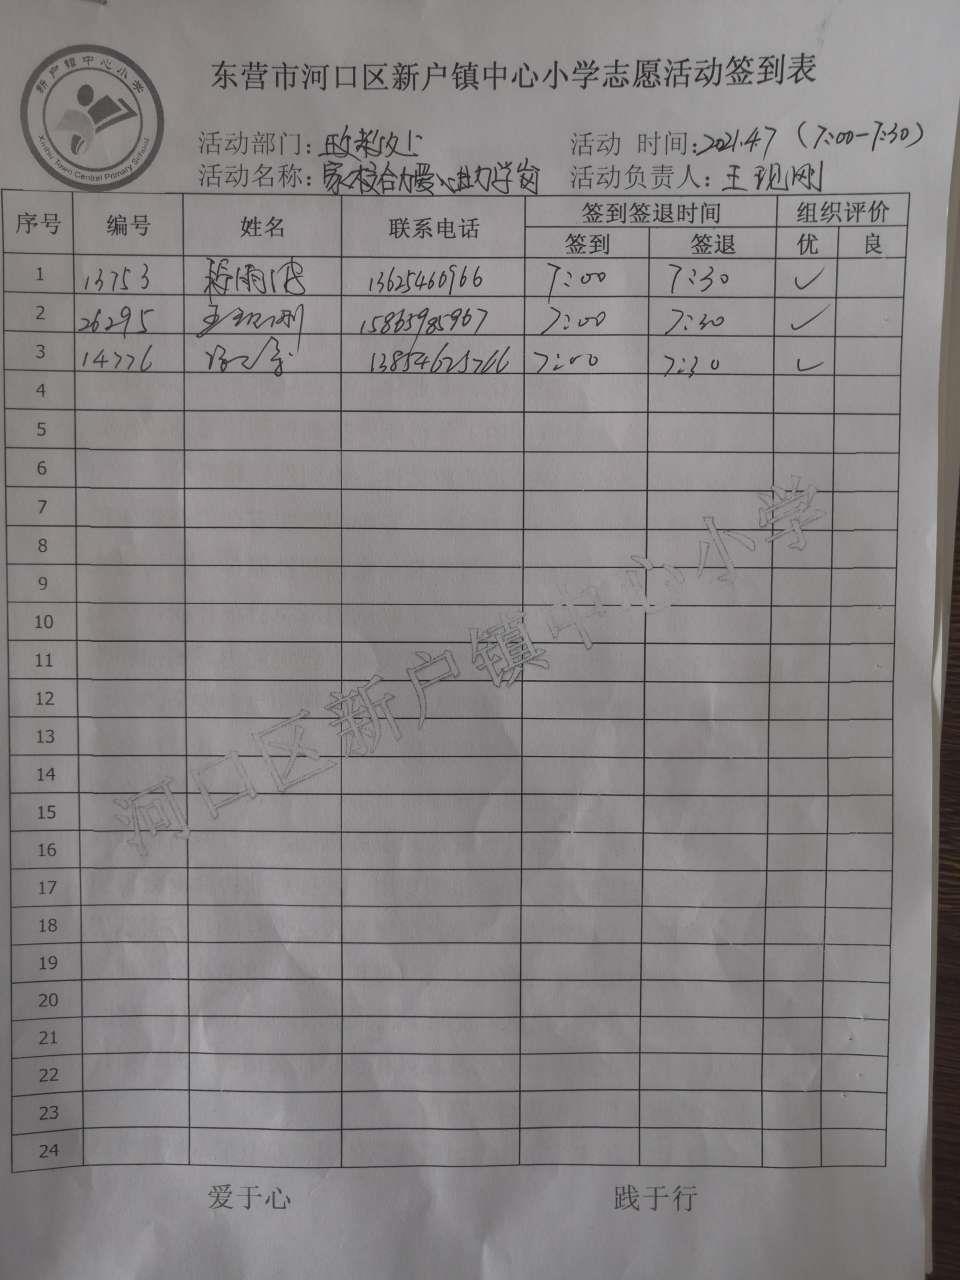 新户镇中心小学
Xinhu Town Central Primary School
东营市河口区新户镇中心小学志愿活动签到表
活动部门：政教处 活动 时间：2021.4.7（7:00-7:30）
活动名称：家校合力爱心助力学岗 活动负责人：王现刚
序号 编号 姓名 联系电话 签到签退时间 组织评价
签到 签退 优 良
1 13753 13625460966 7:00 7:30 ✓
2 26295 王现刚 15865985967 7:00 7:30 ✓
3 14776 13854625766 7:00 7:30 ✓
4
5
6
7
8
9
10
11
12
13
14
15
16
17
18
19
20
21
22
23
24
河口区新户镇中心小学
爱于心 践于行